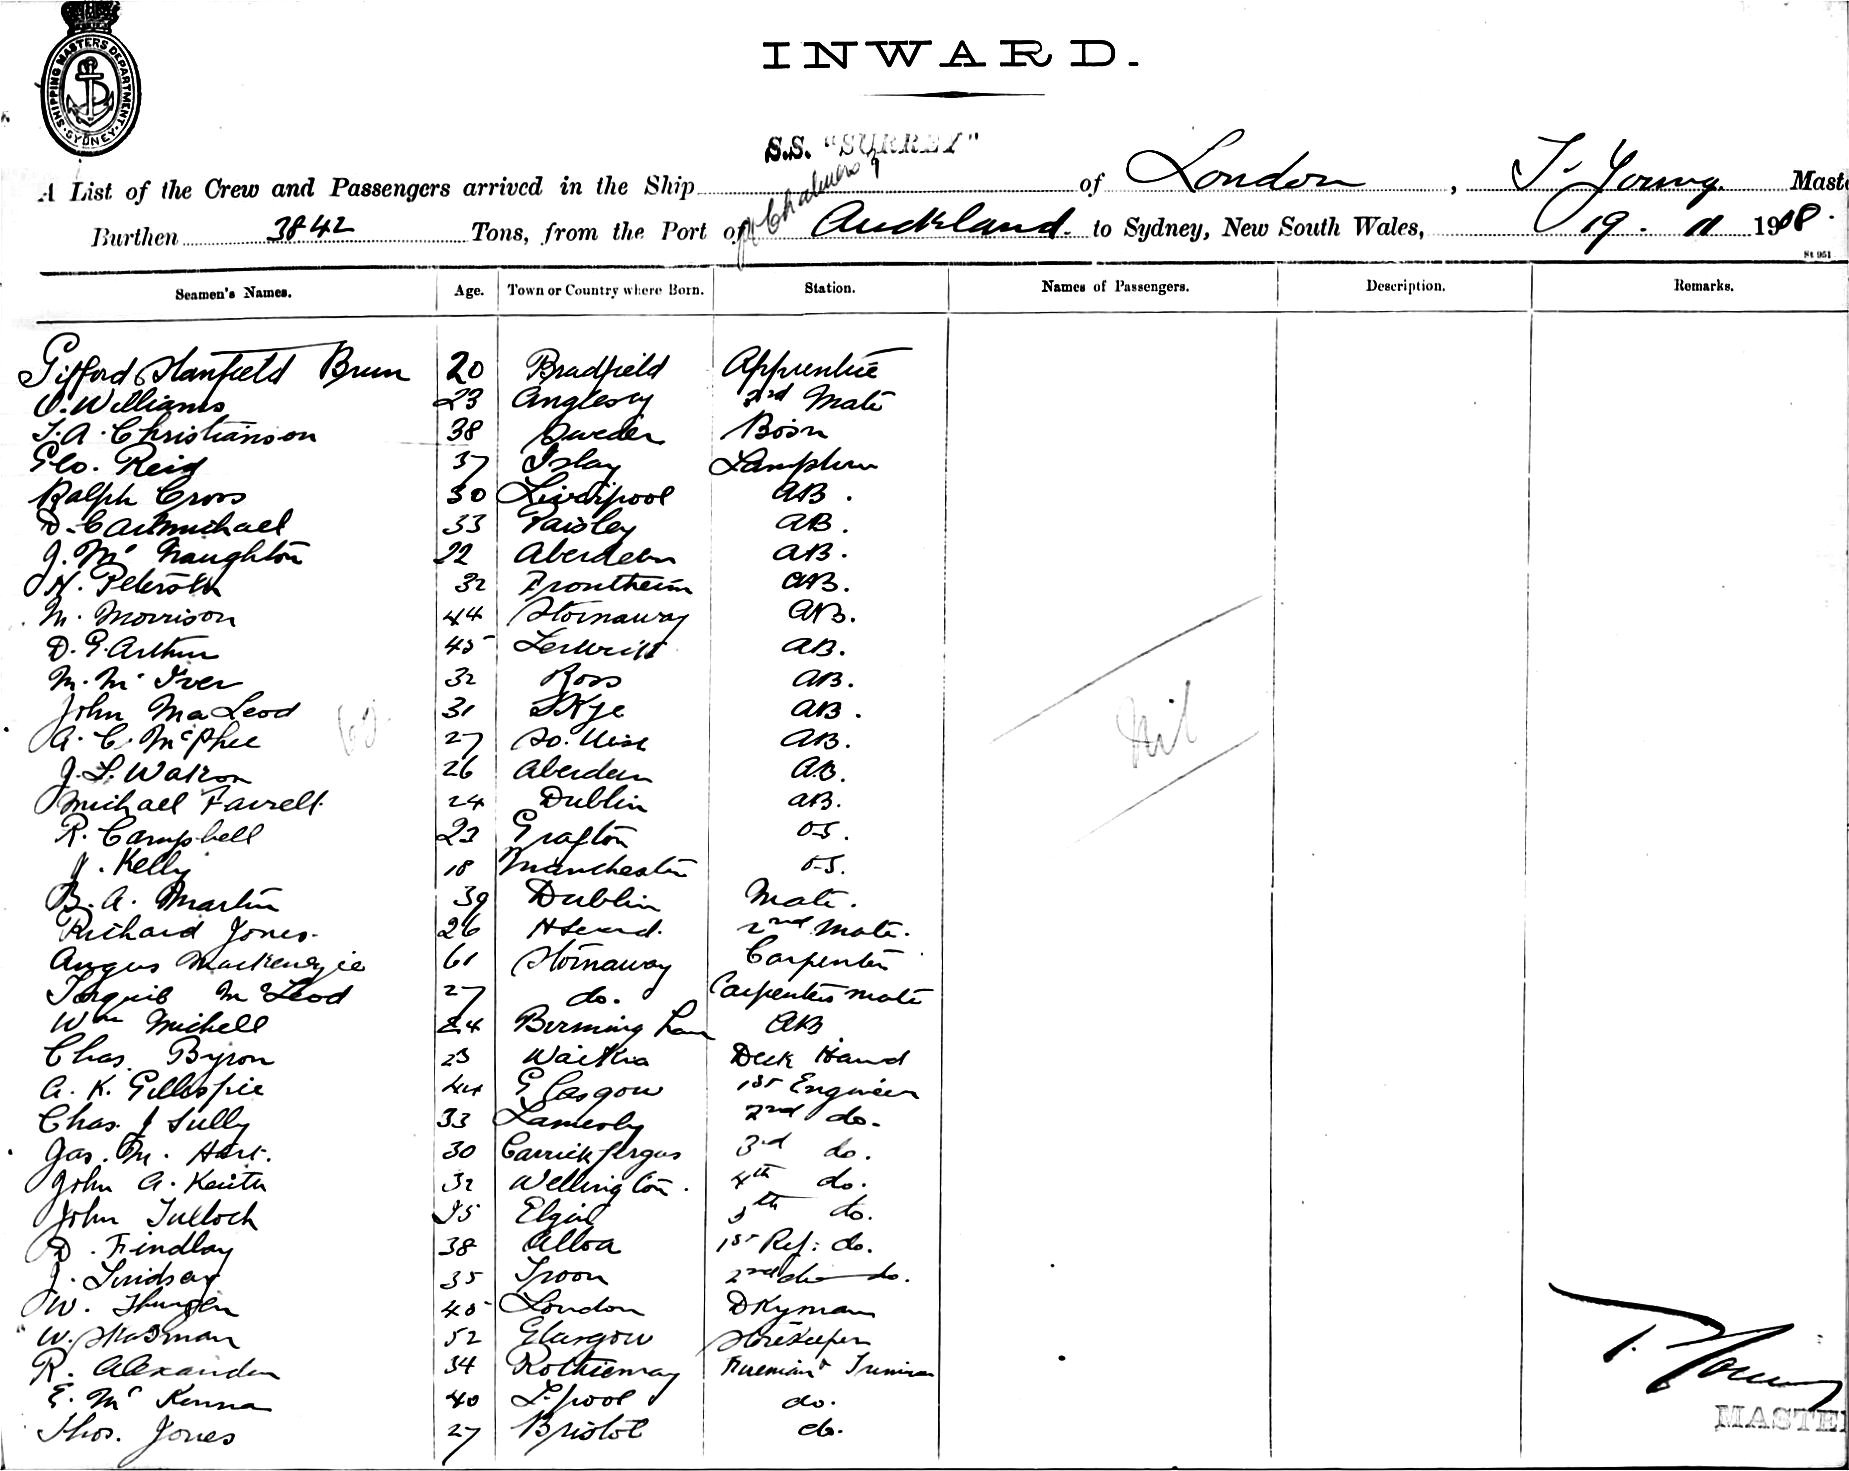 SHIPPING MASTERS DEPARTMENT · SYDNEY ·
INWARD.
S.S. "SURREY"
A List of the Crew and Passengers arrived in the Ship of London, T. Young. Maste
Pt Chalmers &
Burthen 3842 Tons, from the Port of Auckland. to Sydney, New South Wales, 19. 11 1908.
St 951
Seamen's Names. Age. Town or Country where Born. Station. Names of Passengers. Description. Remarks.
Gifford Stanfield Brun 20 Bradfield Apprentice
O. Williams 23 Anglesey 3rd Mate
J. A. Christianson 38 Sweden Bosn
Geo. Reid 37 Islay Lamptrim
Ralph Cross 30 Liverpool AB.
D. Carmichael 33 Paisley AB.
J. Mc Naughton 22 Aberdeen AB.
N. Peterson 32 Trontheim AB.
M. Morrison 44 Stornaway AB.
D. G. Arthur 45 Lerwick AB.
M. Mc Iver 32 Ross AB.
John MacLeod 31 Skye AB.
A. C. McPhee 27 So. Uist AB.
J. S. Watson 26 Aberdeen AB.
Nil
Michael Farrell 24 Dublin AB.
R. Campbell 23 Grafton O.S.
J. Kelly 18 Manchester O.S.
B. A. Martin 39 Dublin Mate.
Richard Jones. 26 2nd Mate.
Angus Mackenzie 61 Stornaway Carpenter
Torquil McLeod 27 do. Carpenters mate
Wm Michell 24 Birmingham AB
Chas. Byron 23 Deck Hand
A. K. Gillespie 44 Glasgow 1st Engineer
Chas. J Sully 33 2nd do.
Jas. M. Hart. 30 Carrickfergus 3rd do.
John A. Keith 32 Wellington. 4th do.
John Tulloch 25 Elgin 5th do.
D. Findlay 38 Alloa 1st Ref: do.
J. Lindsay 35 Troon 2nd do do.
W. 45 London Dkyman
W. 52 Glasgow Storekeeper
R. Alexander 34 Rothiemay Fireman & Trimmer
E. Mc Kenna 40 L.pool do.
T. Young
MASTER
Thos. Jones 27 Bristol do.